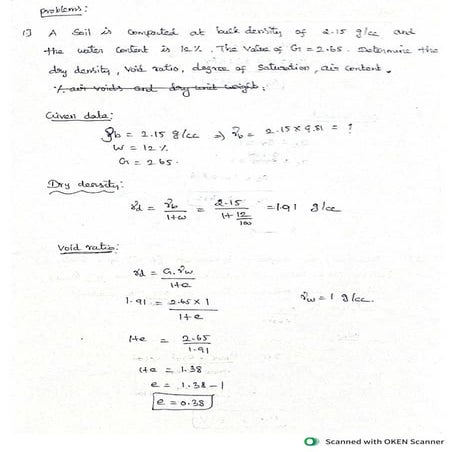 problems:
1) A Soil is Compacted at bulk density of 2.15 g/cc and
the water Content is 12%. The Value of G = 2.65. Determine the
dry density, Void ratio, degree of Saturation, air content.
% air voids and dry unit weight.
Given data:
ρb = 2.15 g/cc ⇒ γb = 2.15 × 9.81 = ?
W = 12 %
G = 2.65.
Dry density:
γd = γb / 1+w = 2.15 / 1+ 12/100 = 1.91 g/cc
Void ratio:
γd = G.γw / 1+e
1.91 = 2.65 × 1 / 1+e γw = 1 g/cc.
1+e = 2.65 / 1.91
1+e = 1.38
e = 1.38 - 1
e = 0.38
Scanned with OKEN Scanner